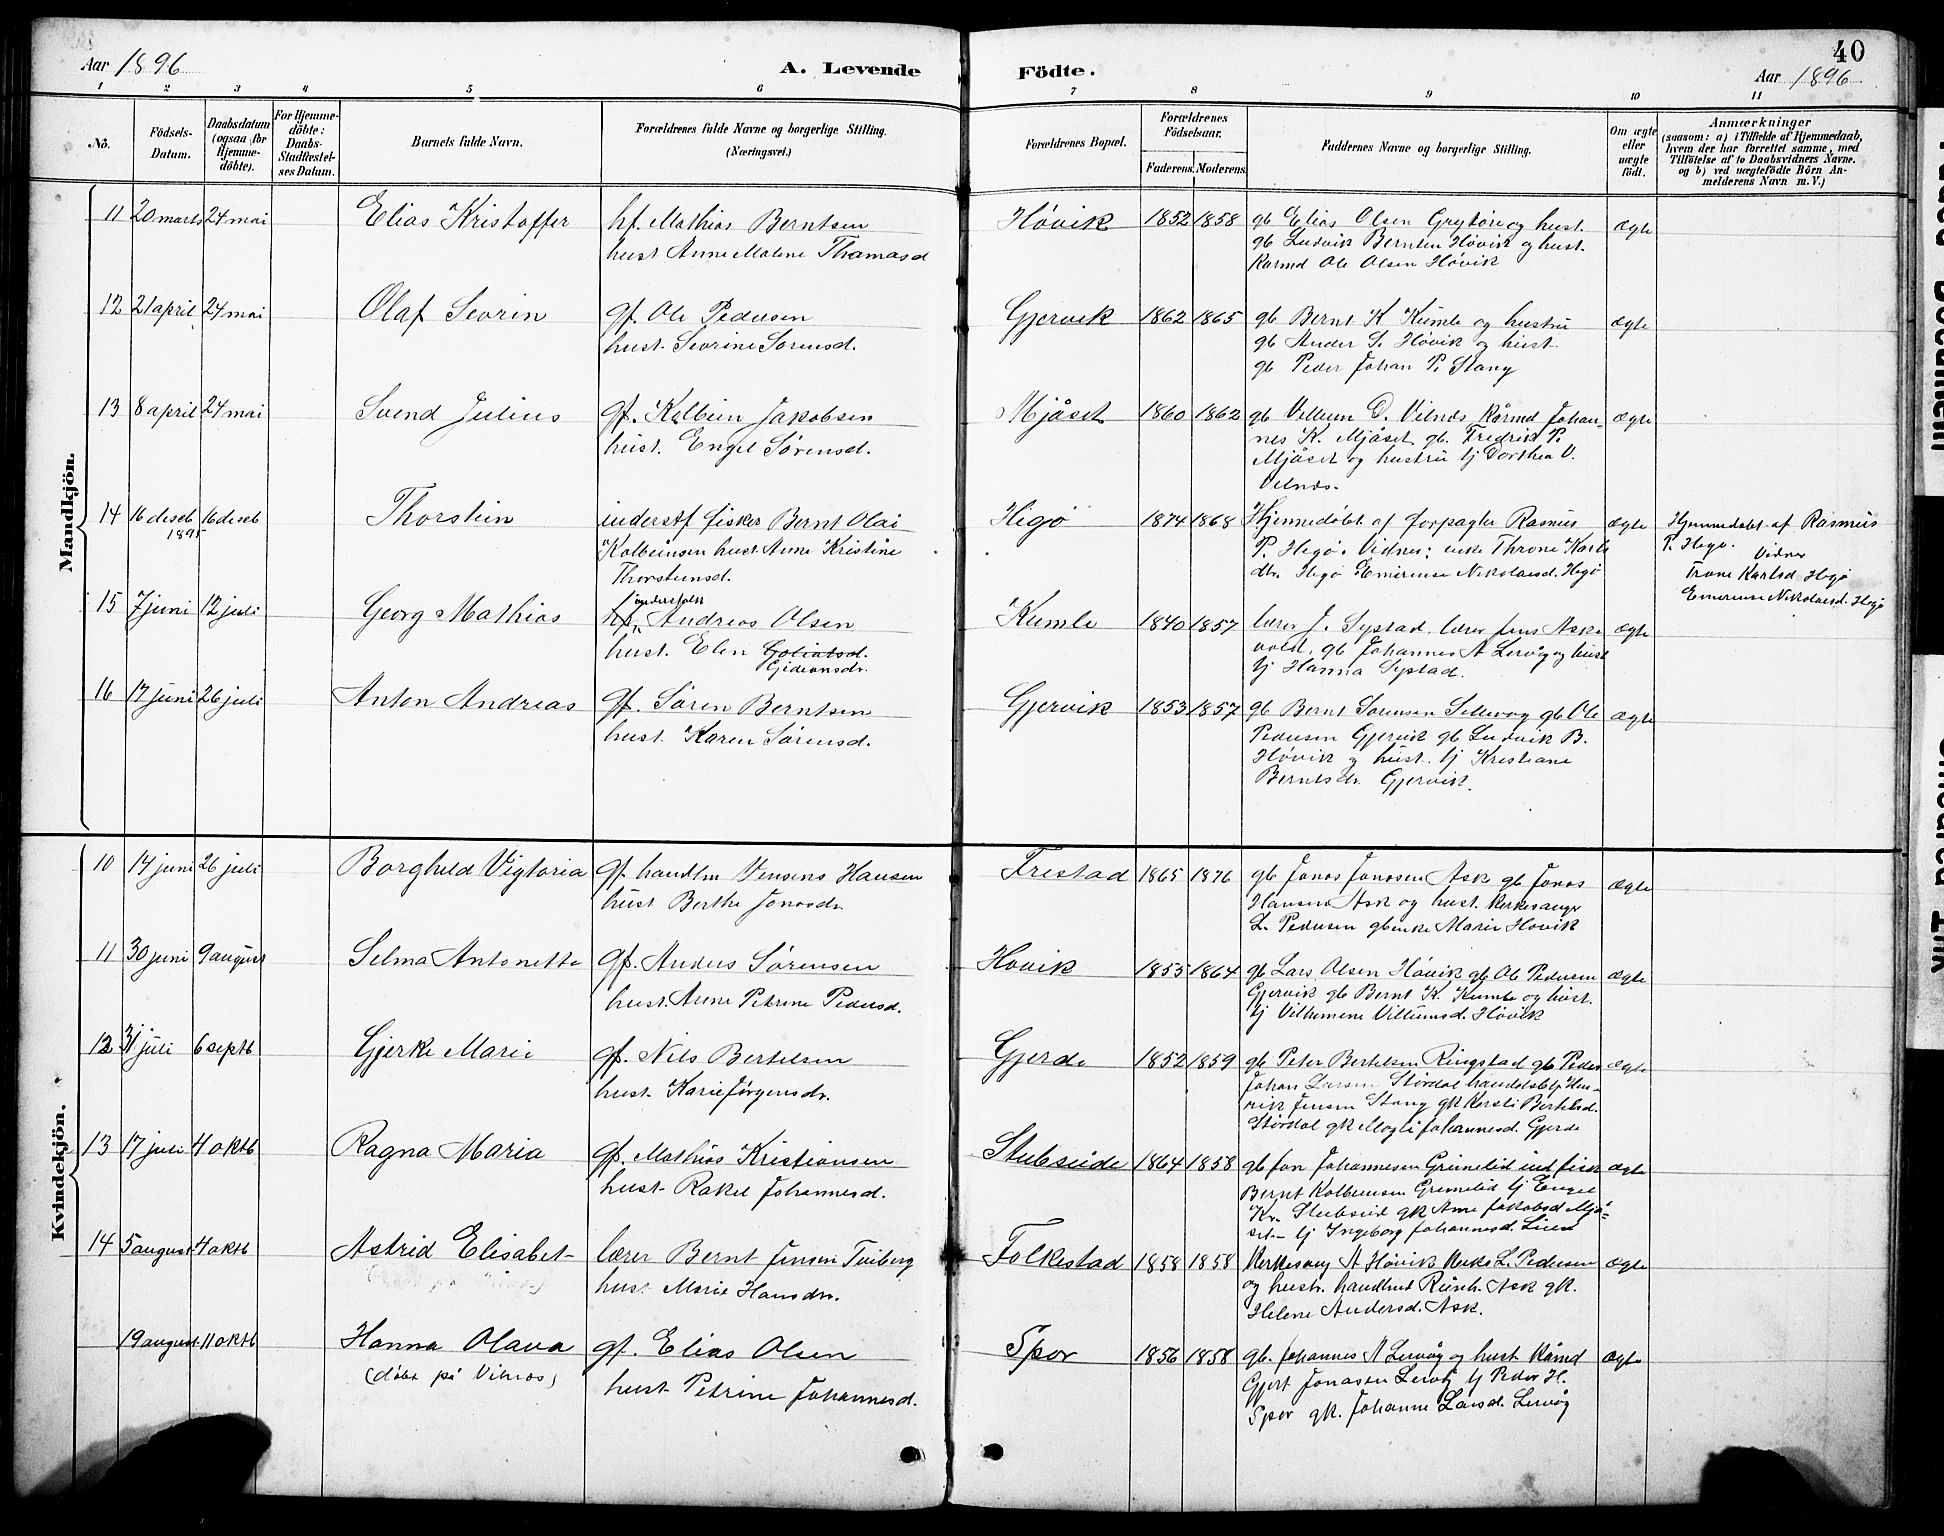 Aar 1896
A. Levende
Födte.
40
Aar 1896
1 2 3 4 5 6 7 8 9 10 11
No.
Födsels-Datum.
Daabsdatum (ogsaa for Hjemme-döbte).
For Hjemme-döbte: Daabs-Stadfæstel-ses Datum.
Barnets fulde Navn.
Forældrenes fulde Navne og borgerlige Stilling. (Næringsvei.)
Forældrenes Bopæl.
Forældrenes Födselsaar.
Faderens. Moderens.
Faddernes Navne og borgerlige Stilling.
Om ægte eller uægte födt.
Anmærkninger
(saasom: a) i Tilfælde af Hjemmedaab, hvem der har forrettet samme, med Tilföielse af to Daabsvidners Navne. og b) ved uægtefödte Börn An-melderens Navn m. V.)
Mandkjön.
11 20 marts 24 mai Elias Kristoffer hf. Mathias Berntsen Høvik 1852 1858 gb Elias Olsen Grytøre og hust. ægte
hust Anne Malene Thomasd gb Ludvik Berntsen Høvik og hust.
Karmd Ole Olsen Høvik
12 21 april 24 mai Olaf Sevrin gf. Ole Pedersen Gjervik 1862 1865 gb Bernt K Kumle og hustru ægte
hust. Sevrine Sørensd. gb Anders S. Høvik og hust.
gb Peder Johan P. Stang
13 8 april 24 mai Svend Julius gf. Kolbein Jakobsen Mjåset 1860 1862 gb Villum D. Vilnes Kårmd Johan- ægte
hust. Engel Sørensd. nes K. Mjåset gb. Fredrik P.
Mjåset og hustru tj Dorthea V.
Vilnes.
14 16 deseb 1895 16 deseb Thorstein inderst fisker Bernt Olai Hegø 1874 1868 Hjemmedøbt af forpagter Rasmus ægte Hjemmedøbt af Rasmus
Kolbeinsen hust Anne Kristine P. Hegø. Vidner: enke Throne Karls P. Hegø. Vidner
Thorsteinsd. dtr. Hegø Emerense Nikolaisd. Hegø Trone Karlsd Hegø
Emerense Nikolaisd. Hegø
15 7 juni 12 juli Georg Mathias inderfolk Andreas Olsen Kumle 1840 1857 lærer J. Systad, lærer Jens Aske ægte
hust. Elen Goliatsd. Gideonsdr. vold, gb Johannes A Lervåg og hust
tj Hanna Systad.
16 17 juni 26 juli Anton Andreas gf. Søren Berntsen Gjervik 1853 1857 gb Bernt Sørensen Sellevog gb Ole ægte
hust. Karen Sørensd. Pedersen Gjervik gb Ludvik B.
Høvik og hust. tj Kristiane
Berntsdr. Gjervik.
Kvindekjön.
10 14 juni 26 juli Borghild Vigtoria gf. handlm Hansen Frestad 1865 1876 gb Jonas Jonasen Ask gb Jonas ægte
hust Berthe Jonasdr. Hansen Ask og hust. Kirkesanger
L. Pedersen gbenke Marie Høvik
11 30 juni 9 august Selma Antonette gf. Anders Sørensen Høvik 1855 1864 gb Lars Olsen Høvik gb Ole Pedersen ægte
hust. Anne Petrine Pedersd. Gjervik gb Bernt K. Kumle og hust.
tj Vilhemine Villumsd. Høvik
12 31 juli 6 septb Gjerke Marie gf. Nils Bertelsen Gjerde 1852 1859 gb Peter Bertelsen Ringstad gb Peder ægte
hust. Karie Jørgensdr. Johan Larsen Størdal handelsbtj Hen-
rik Jensen Stang gk Karsti Bertelsd.
Størdal gk Magli Johannesd. Gjerde
13 17 juli 4 oktb Ragna Maria gf. Mathias Kristiansen Stubseide 1864 1858 gb Jon Johannesen Grimelid ind fisk ægte
hust. Rakel Johannesd. Bernt Kolbeinsen Grimelid tj Engel
Kr. Stubseid gk Anne Jakobsd Mjå-
set tj Ingeborg Johannesd. Lien
14 5 august 4 oktb Astrid Elisabet lærer Bernt Jensen Folkestad 1858 1858 Kirkesang A Høvik Kirkes L. Pedersen ægte
hust. Marie Hansdr. og hustr. handlmd Ask gk.
Helene Andersd. Ask.
19 august 11 oktb Hanna Olava gf. Elias Olsen Spor 1856 1858 gb. Johannes A Lervåg og hust Kårmd ægte
(døbt på Vilnes) hust. Petrine Johannesd. Gjert Jonasen Lervåg tj Peder H.
Spor gk. Johanne Larsd. Lervåg